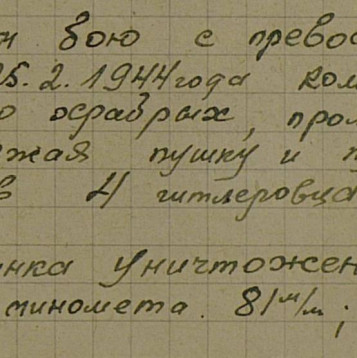 н бою с превос
25.2.1944 года ком
о осрабрых, пром
жая пушку и п
в 4 гитлеровца
нка уничтожен
миномета 81 м/м;